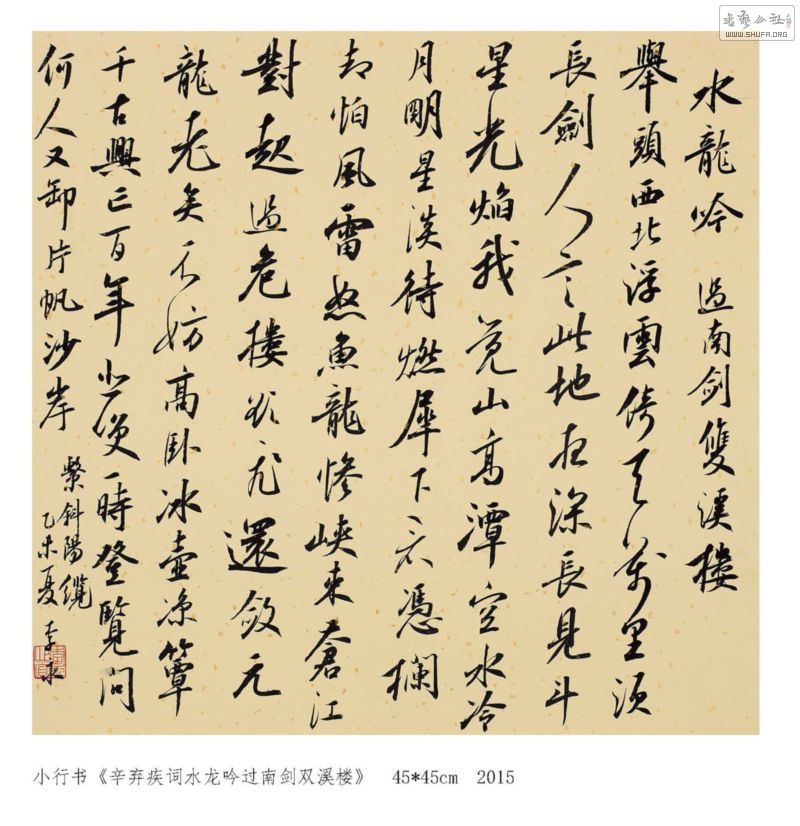 書藝公社
WWW.SHUFA.ORG
水龍吟 過南剑雙溪樓
舉頭西北浮雲倚天萬里須
長劍人言此地夜深長見斗
星光焰我覺山高潭空水冷
月明星淡待燃犀下看憑欄
却怕風雷怒魚龍惨峡束蒼江
對起過危樓欲飛還斂元
龍老矣不妨高卧冰壺凉簟
千古興亡百年悲笑一時登覽問
何人又卸片帆沙岸
繫斜陽纜
乙未夏 李永
小行书《辛弃疾词水龙吟过南剑双溪楼》 45*45cm 2015